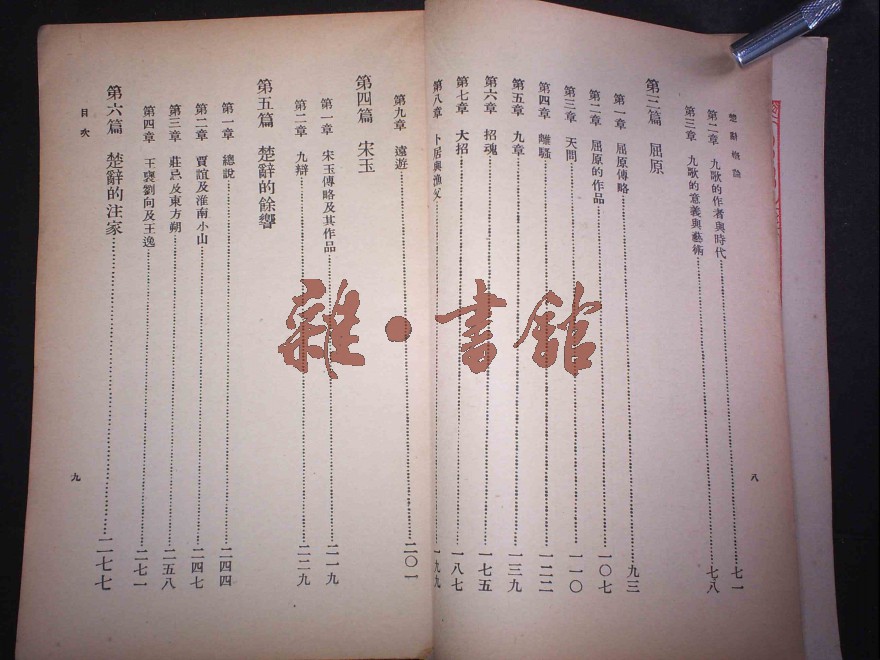 楚辭概論
第二章 九歌的作者與時代……七一
第三章 九歌的意義與藝術……七八
第三篇 屈原
第一章 屈原傳略……九三
第二章 屈原的作品……一〇七
第三章 天問……一一〇
第四章 離騷……一二二
第五章 九章……一三九
第六章 招魂……一七五
第七章 大招……一八七
第八章 卜居與漁父……一九九
八
第九章 遠遊……二〇一
第四篇 宋玉
第一章 宋玉傳略及其作品……二一九
第二章 九辯……二二九
第五篇 楚辭的餘響
第一章 總說……二四四
第二章 賈誼及淮南小山……二四七
第三章 莊忌及東方朔……二五八
第四章 王襃劉向及王逸……二七一
第六篇 楚辭的注家……二七七
目次
九
雜·書館